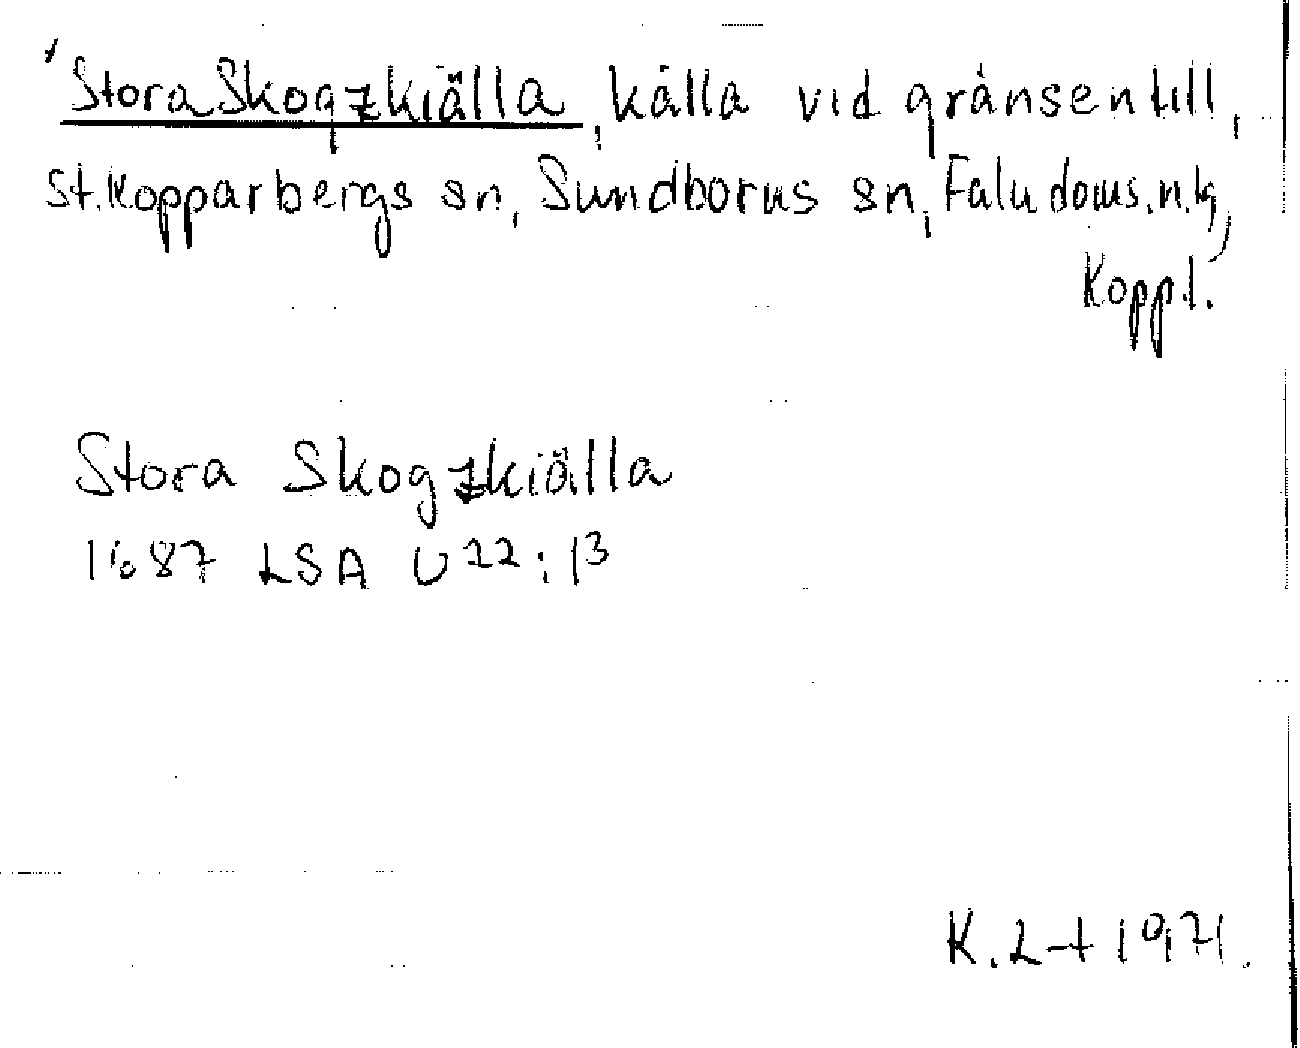 *Stora Skogzkiälla, källa vid gränsen till,
St. Kopparbergs sn, Sundborns sn, Falu doms.n.tg,
Kopp.l.
Stora Skogzkiälla
1687 LSA U22:13
K. L-t 1971.